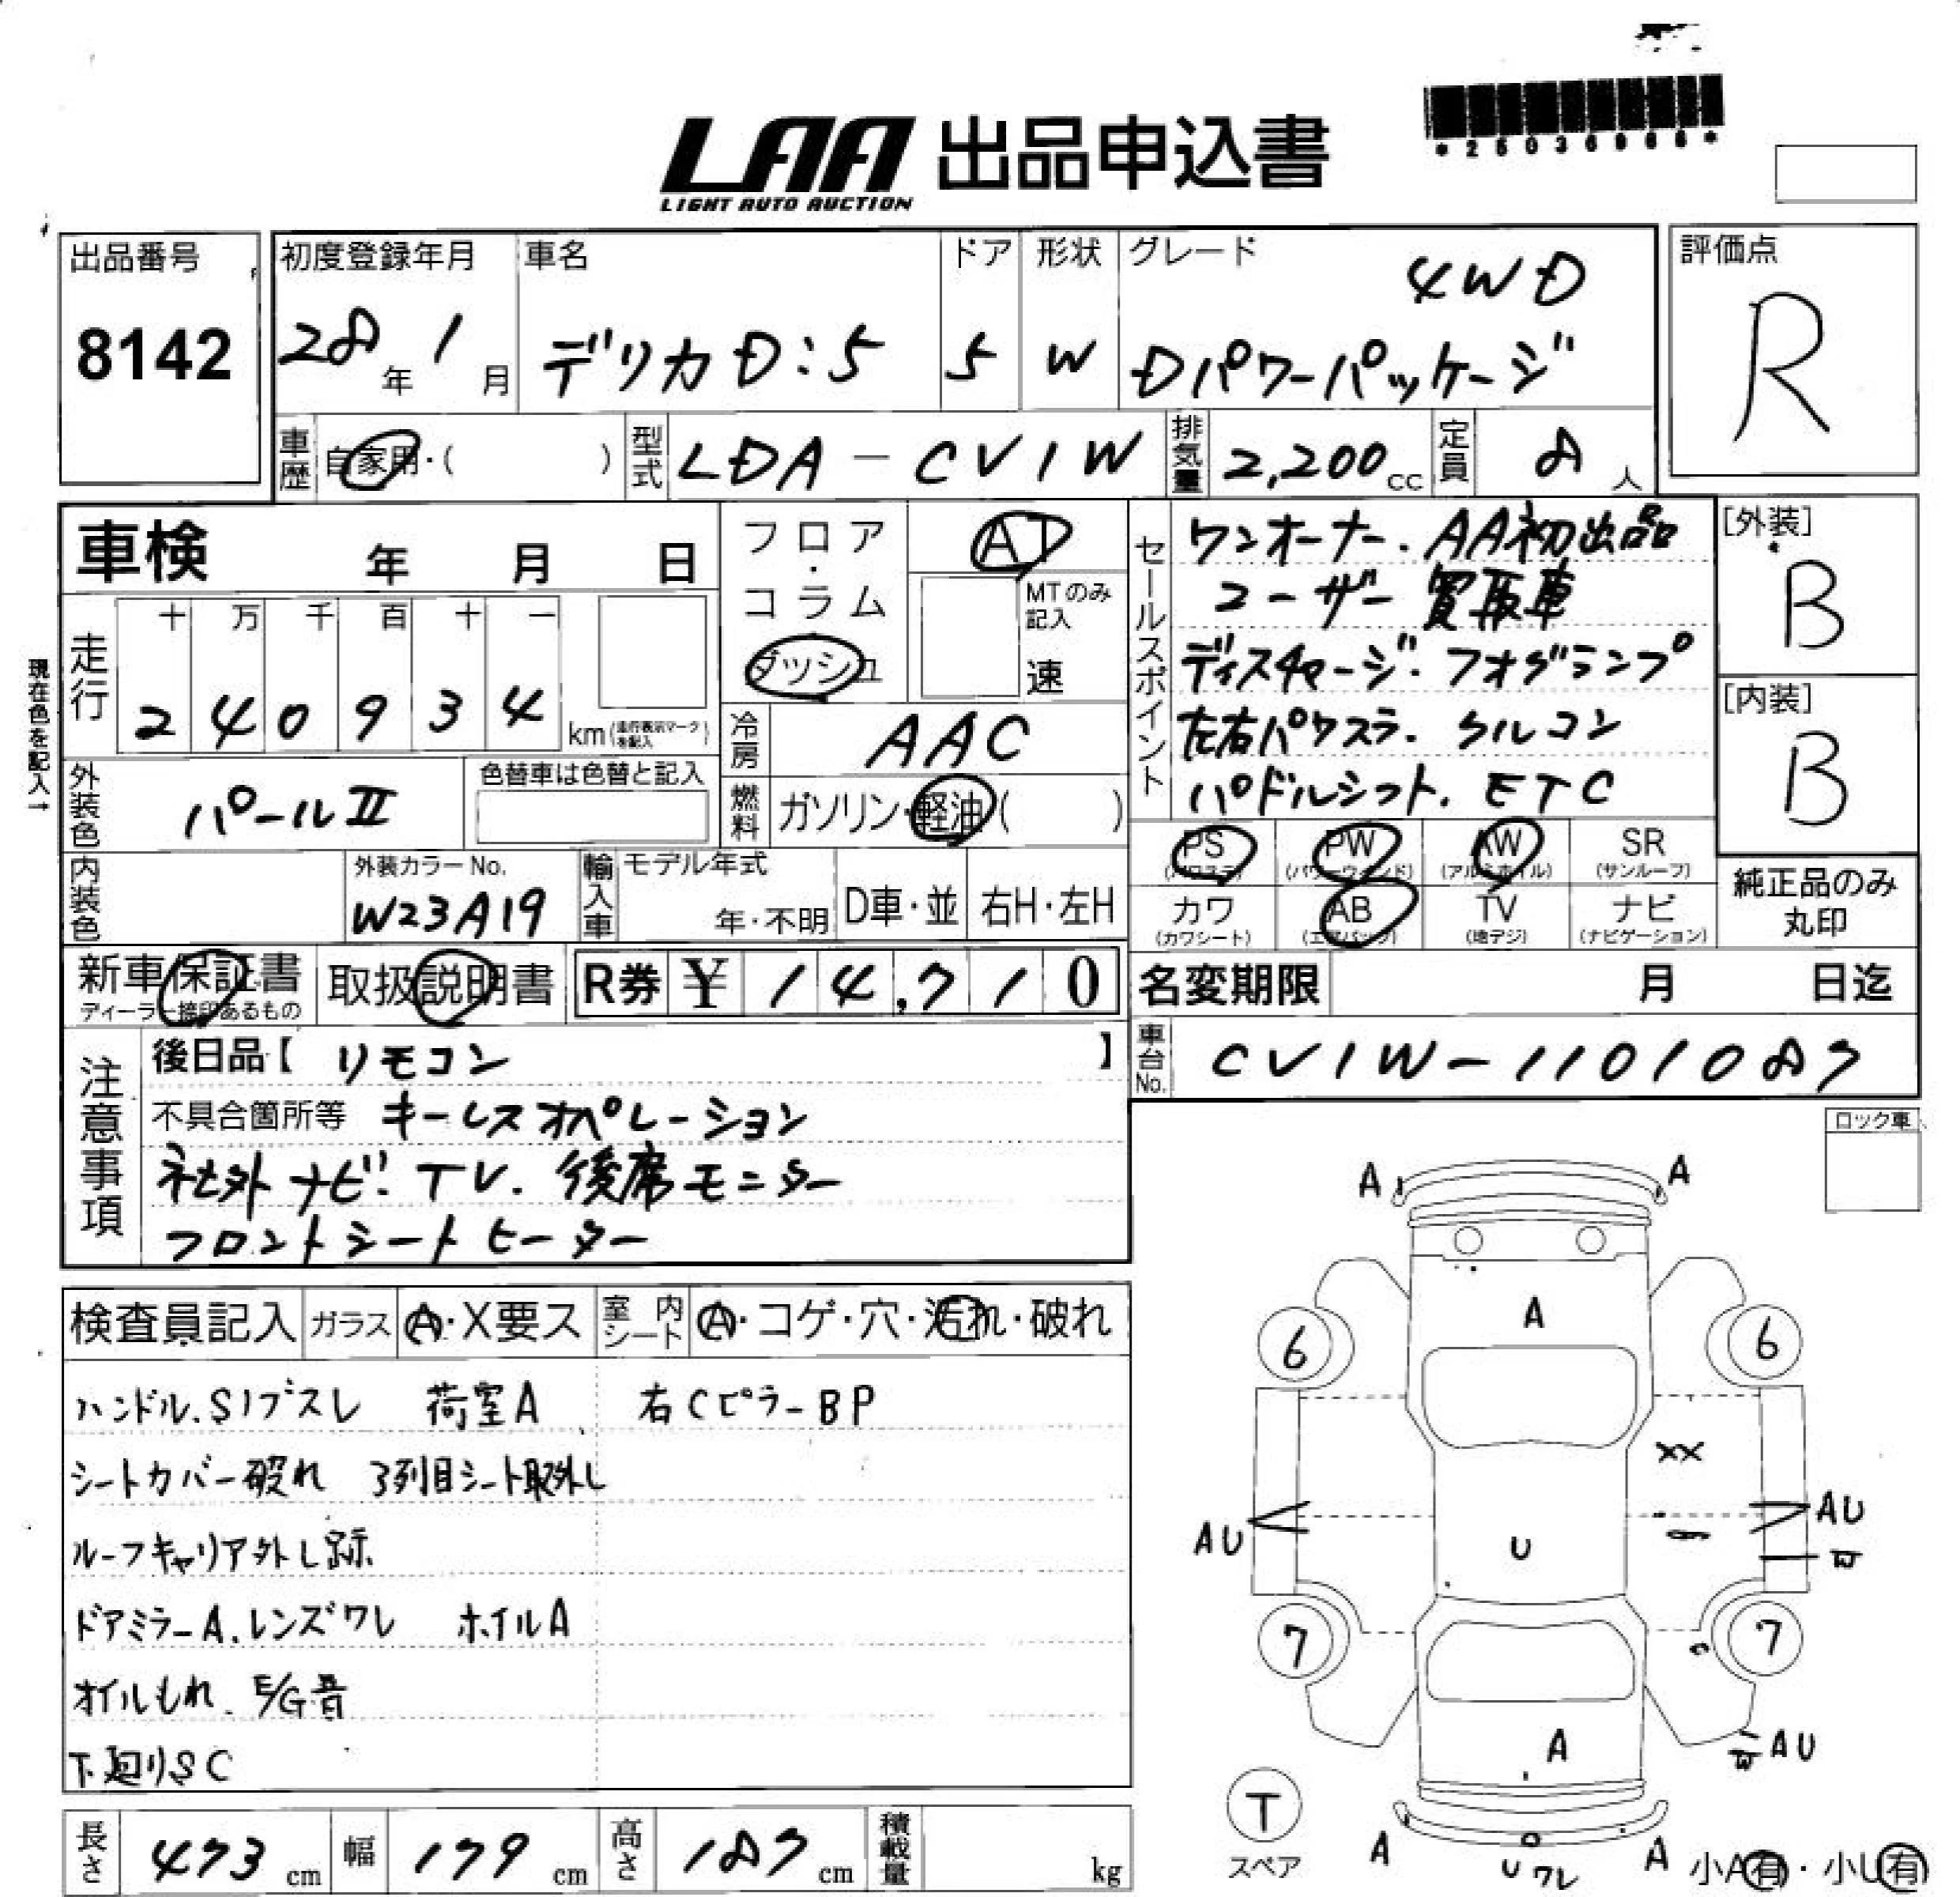 *25036966*
LAA 出品申込書
LIGHT AUTO AUCTION
出品番号
8142
初度登録年月
28年 1月
車名
デリカD:5
ドア
5
形状
W
グレード
4WD
Dパワーパッケージ
評価点
R
車歴 自家用・( )
型式 LDA-CV1W
排気量 2,200cc
定員 8人
車検 年 月 日
フロア・コラム
ダッシュ
AT
MTのみ記入
速
セールスポイント
ワンオーナー.AA初出品
ユーザー買取車
ディスチャージ.フォグランプ
左右パワスラ.クルコン
パドルシフト.ETC
[外装]
B
[内装]
B
現在色を記入→
走行
十 万 千 百 十 一
2 4 0 9 3 4 km(走行表示マークを記入)
冷房 AAC
外装色 パールⅡ
色替車は色替と記入
燃料 ガソリン・軽油( )
内装色
外装カラーNo.
W23A19
輸入車
モデル年式
年・不明
D車・並
右H・左H
PS
(パワステ)
PW
(パワーウィンド)
AW
(アルミホイル)
SR
(サンルーフ)
カワ
(カワシート)
AB
(エアバッグ)
TV
(地デジ)
ナビ
(ナビゲーション)
純正品のみ
丸印
新車保証書
ディーラー捺印あるもの
取扱説明書
R券 ¥ 14,710
名変期限 月 日迄
車台No. CV1W-1101087
注意事項
後日品【 リモコン 】
不具合箇所等 キーレスオペレーション
社外ナビ.TV.後席モニター
フロントシートヒーター
ロック車
検査員記入 ガラス A・X要ス 室内シート A・コゲ・穴・汚れ・破れ
ハンドル.Sノブスレ 荷室A 右CピラーBP
シートカバー破れ 3列目シート取外し
ルーフキャリア外し跡
ドアミラーA.レンズワレ ホイルA
オイルもれ.E/G音
下廻りSC
A A
A
6 6
XX
AU
U
AU
W
7 7
A
W AU
T
スペア
A
U ワレ
A
小A有・小U有
長さ 473cm
幅 179cm
高さ 187cm
積載量 kg